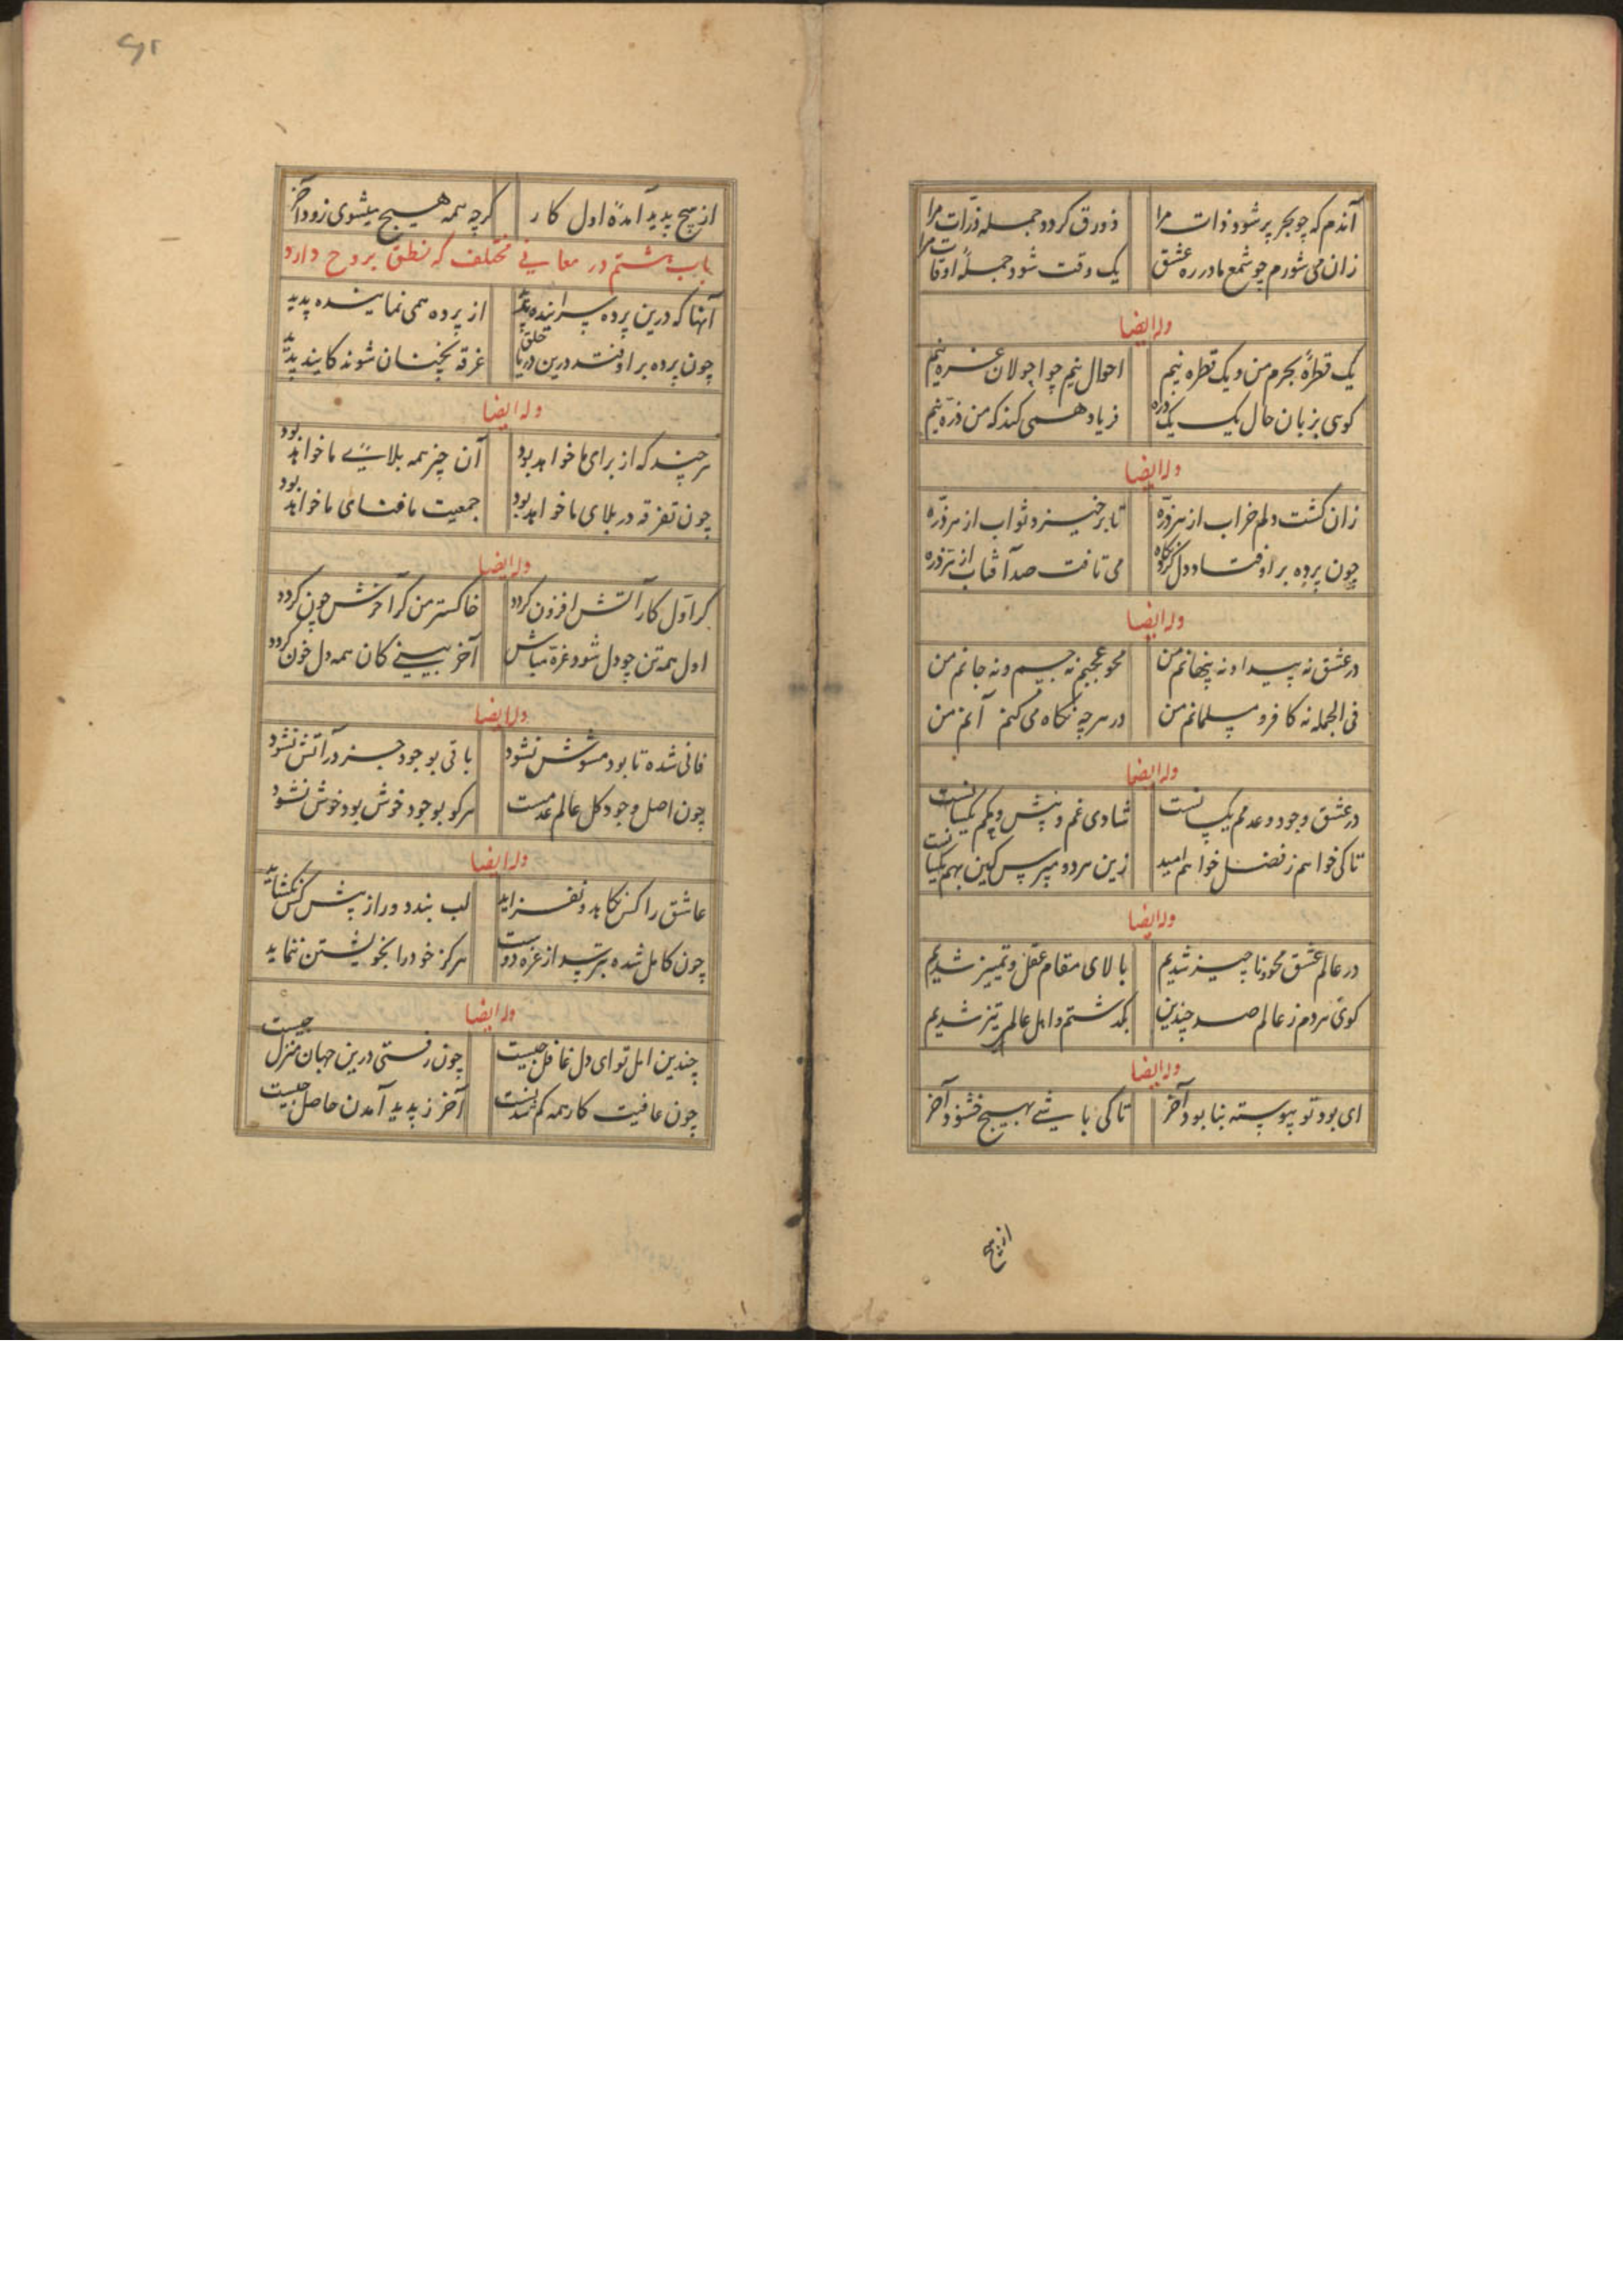 آندم که چو بحر پر شود ذات مرا ذورق کردد جمله ذرّات مرا
زان می شورم چو شمع مادر ره عشق یک وقت شود جملهٔ اوقات مرا
وله ایضا
یک قطرهٔ بحرم من و یک قطره نیم احوال نیم چو احولان غره نیم
کوی بزبان حال یک یک ذره فریاد همی کند که من ذرّه نیم
وله ایضا
زان کشت دلم خراب از هر ذرّه تا برخیزد ثواب از هر ذرّه
چون پرده بر اوفتاد دل کرد نکاه می تافت صد آفتاب از هر ذره
وله ایضا
در عشق نه پیدا و نه پنهانم من محو عجبم نه جسم و نه جانم من
فی الجمله نه کافر و مسلمانم من در هر چه نکاه می کنم آنم من
وله ایضا
در عشق وجود و عدمم یکسانست شادی غم و پیش و کم یکسانست
تا کی خواهم ز فضل خواهم امید زین هر دو مپرس کین بهم یکسانست
وله ایضا
در عالم عشق محو و ناچیز شدیم بالای مقام عقل و تمییز شدیم
کوی مردم ز عالم صد چندین بکذشتم و اهل عالم نیز شدیم
وله ایضا
ای بود تو پیوسته بنابود آخر تا کی باشی بهیچ خشنود آخر
از هیچ
از هیچ پدید آمدهٔ اول کار کرچه همه هیچ میشوی زود آخر
باب هشتم در معانی مختلف که نطق بروح دارد
آنها که درین پرده سراینده پدید از پرده همی نماینده پدید
چون پرده بر اوفتد درین دریا خلق غرقه بچنان شوند کاینده پدید
وله ایضا
هر چند که از برای ما خواهد بود آن چیز همه بلای ما خواهد بود
چون تفرقه در بلای ما خواهد بود جمعیت ما فنای ما خواهد بود
وله ایضا
کر اوّل کار آتش افزون کردد خاکستر من کر آخرش چون کردد
اول همه تن چو دل شود غره مباش آخر بینی کان همه دل خون کردد
وله ایضا
فانی شده تا بود مشوش نشود باقی بوجود جز در آتش نشود
چون اصل وجود کل عالم عدمست هر کو بوجود خوش بود خوش نشود
وله ایضا
عاشق را کس نکاید و نفزاید لب بندد و راز پیش کس نکشاید
چون کامل شده بترسد از غره دوست هرکز خود را بخویشتن ننماید
وله ایضا
چندین امل تو ای دل غافل چیست چون رفتی درین جهان منزل چیست
چون عافیت کار همه کم شدنست آخر ز پدید آمدن حاصل چیست